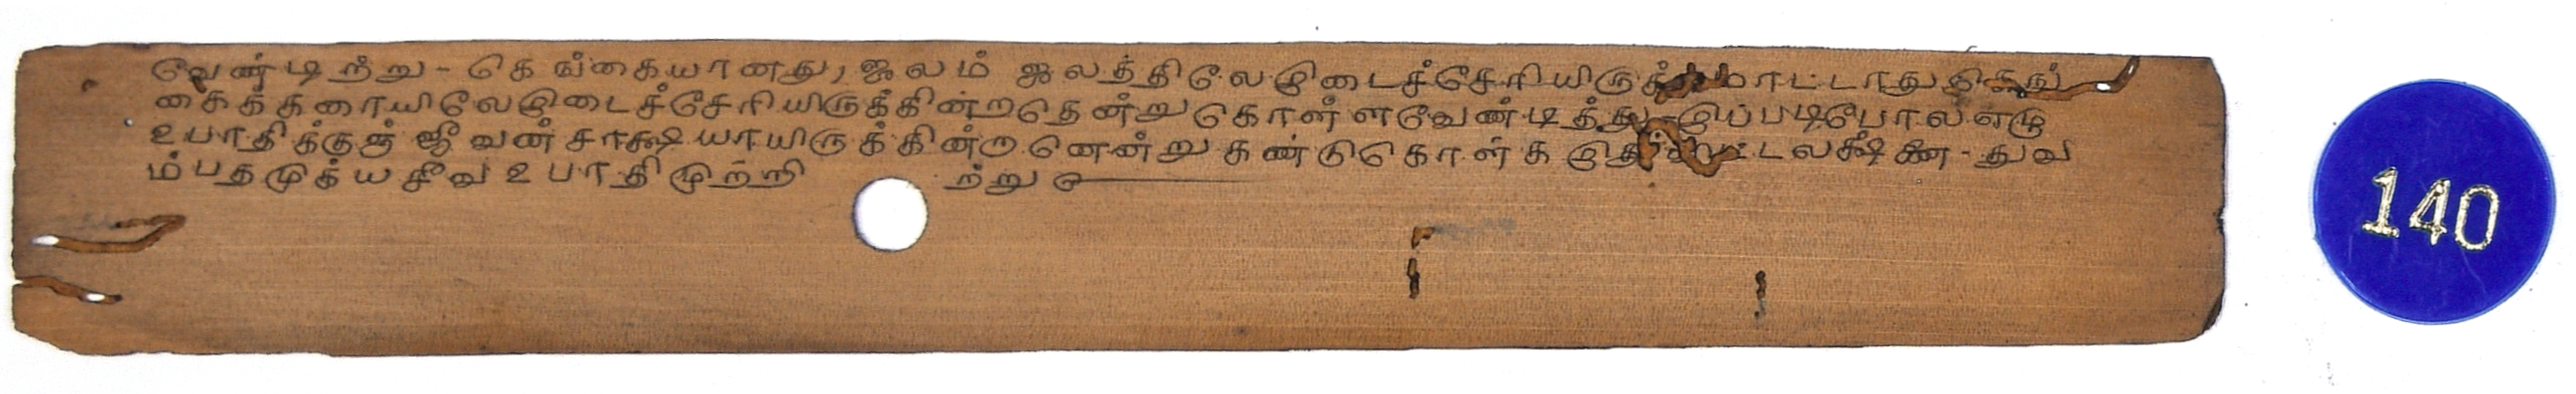 வேண்டிற்று - கெங்கையானது, ஜலம் ஜலத்திலேஇடைச்சேரியிருக்கமாட்டாது
கைக்கரையிலேஇடைச்சேரியிருக்கின்றதென்று கொள்ளவேண்டித்து இப்படிபோல எழு
உபாதிக்குஞ் ஜீவன் சாக்ஷியாயிருக்கின்றனென்று கண்டுகொள்க லக்ஷணை - துவ
ம்பதமுக்ய சீவ உபாதிமுற்றி ற்று
140